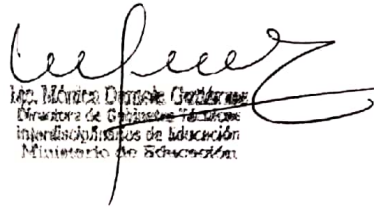 Lic. Mónica
Directora de Gabinetes Técnicos
Interdisciplinarios de Educación
Ministerio de Educación